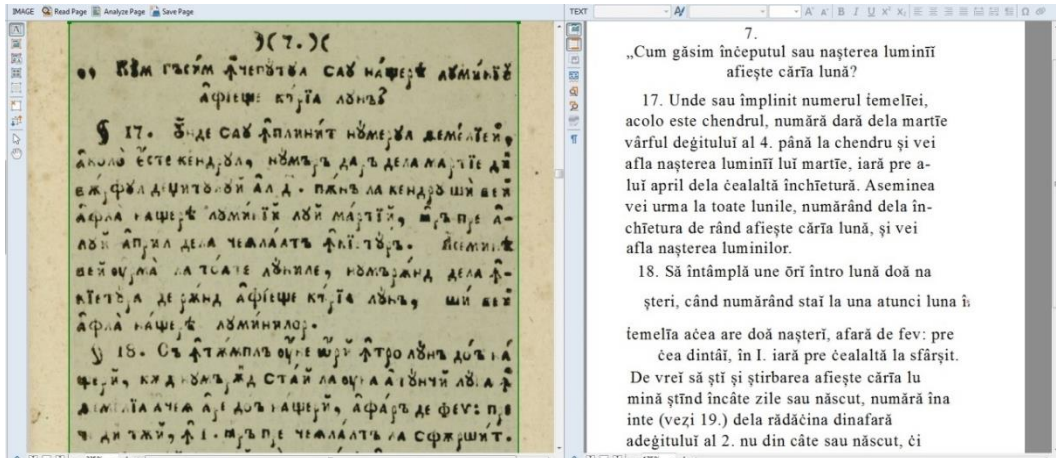 IMAGE Read Page Analyze Page Save Page
TEXT
)( 7. )(
Кꙋм гъсим ꙟчепꙋтꙋл саꙋ на́щерѣ лꙋминїй
а̂фїеще къ́рїа лꙋнъ?
§ 17. Ꙋ́нде саꙋ ꙟплини́т нꙋ́мерꙋл
а̂коло̀ є́сте кендрꙋл, нꙋ́мъръ даръ дела ма́ртїе
ал д҃. пѫ́нъ ла кендрꙋ ши вей
а̂фла̀ на́щерѣ лꙋми́нїй лꙋй ма́ртїй, ꙗръ пре а̂-
лꙋй а̂при́л дела чеꙗла́лтъ ꙟкїетꙋ́ръ. А̂семинѣ
вей ꙋрма̀ ла то́ате лꙋ́ниле, нꙋмърѫ́нд дела ꙟ-
кїетꙋ́ра де рѫнд а̂фїеще къ́рїа лꙋ́нъ, ши вей
а̂фла̀ на́щерѣ лꙋми́нилор.
§ 18. Съ ꙟтѫ́мплъ ꙋ́не ѡ́рй ꙟтро лꙋ́нъ до́ъ на́
щерй, кѫнд нꙋмърѫ́нд стай ла ꙋна а̂тꙋ́нчй лꙋ́на ꙟ
а̂чеꙗ а́ре до́ъ на́щерй, а̂фа́ръ де феv: пре
чѣ динтѫ́й, ꙟ 1. ꙗръ пре чеꙗла́лтъ ла сфѫрши́т.
7.
„Cum găsim începutul sau nașterea luminĭĭ
afiește cărĭa lună?
17. Unde sau împlinit numerul ṫemelĭei,
acolo este chendrul, numără dară dela martĭe
vârful deġitului̇̆ al 4. până la chendru și vei
afla nașterea luminĭĭ luĭ martĭe, iară pre a-
luĭ april dela ċealaltă închĭetură. Aseminea
vei urma la toate lunile, numărând dela în-
chĭetura de rând afiește cărĭa lună, și vei
afla nașterea luminilor.
18. Să întâmplă une ōrĭ întro lună doă na
șteri, când numărând staĭ la una atunci luna în
ṫemelĭa aċea are doă nașterĭ, afară de fev: pre
ċea dintâĭ, în I. iară pre ċealaltă la sfârșit.
De vreĭ să ști și știrbarea afiește cărĭa lu
mină știnḋ încâte zile sau născut, numără îna
inte (vezi 19.) dela rădăċina dinafară
adeġituluĭ al 2. nu din câte sau născut, ċi